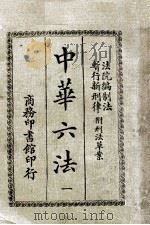 法院編制法
暫行新刑律 附刑法草案
中華六法
一
商務印書館印行